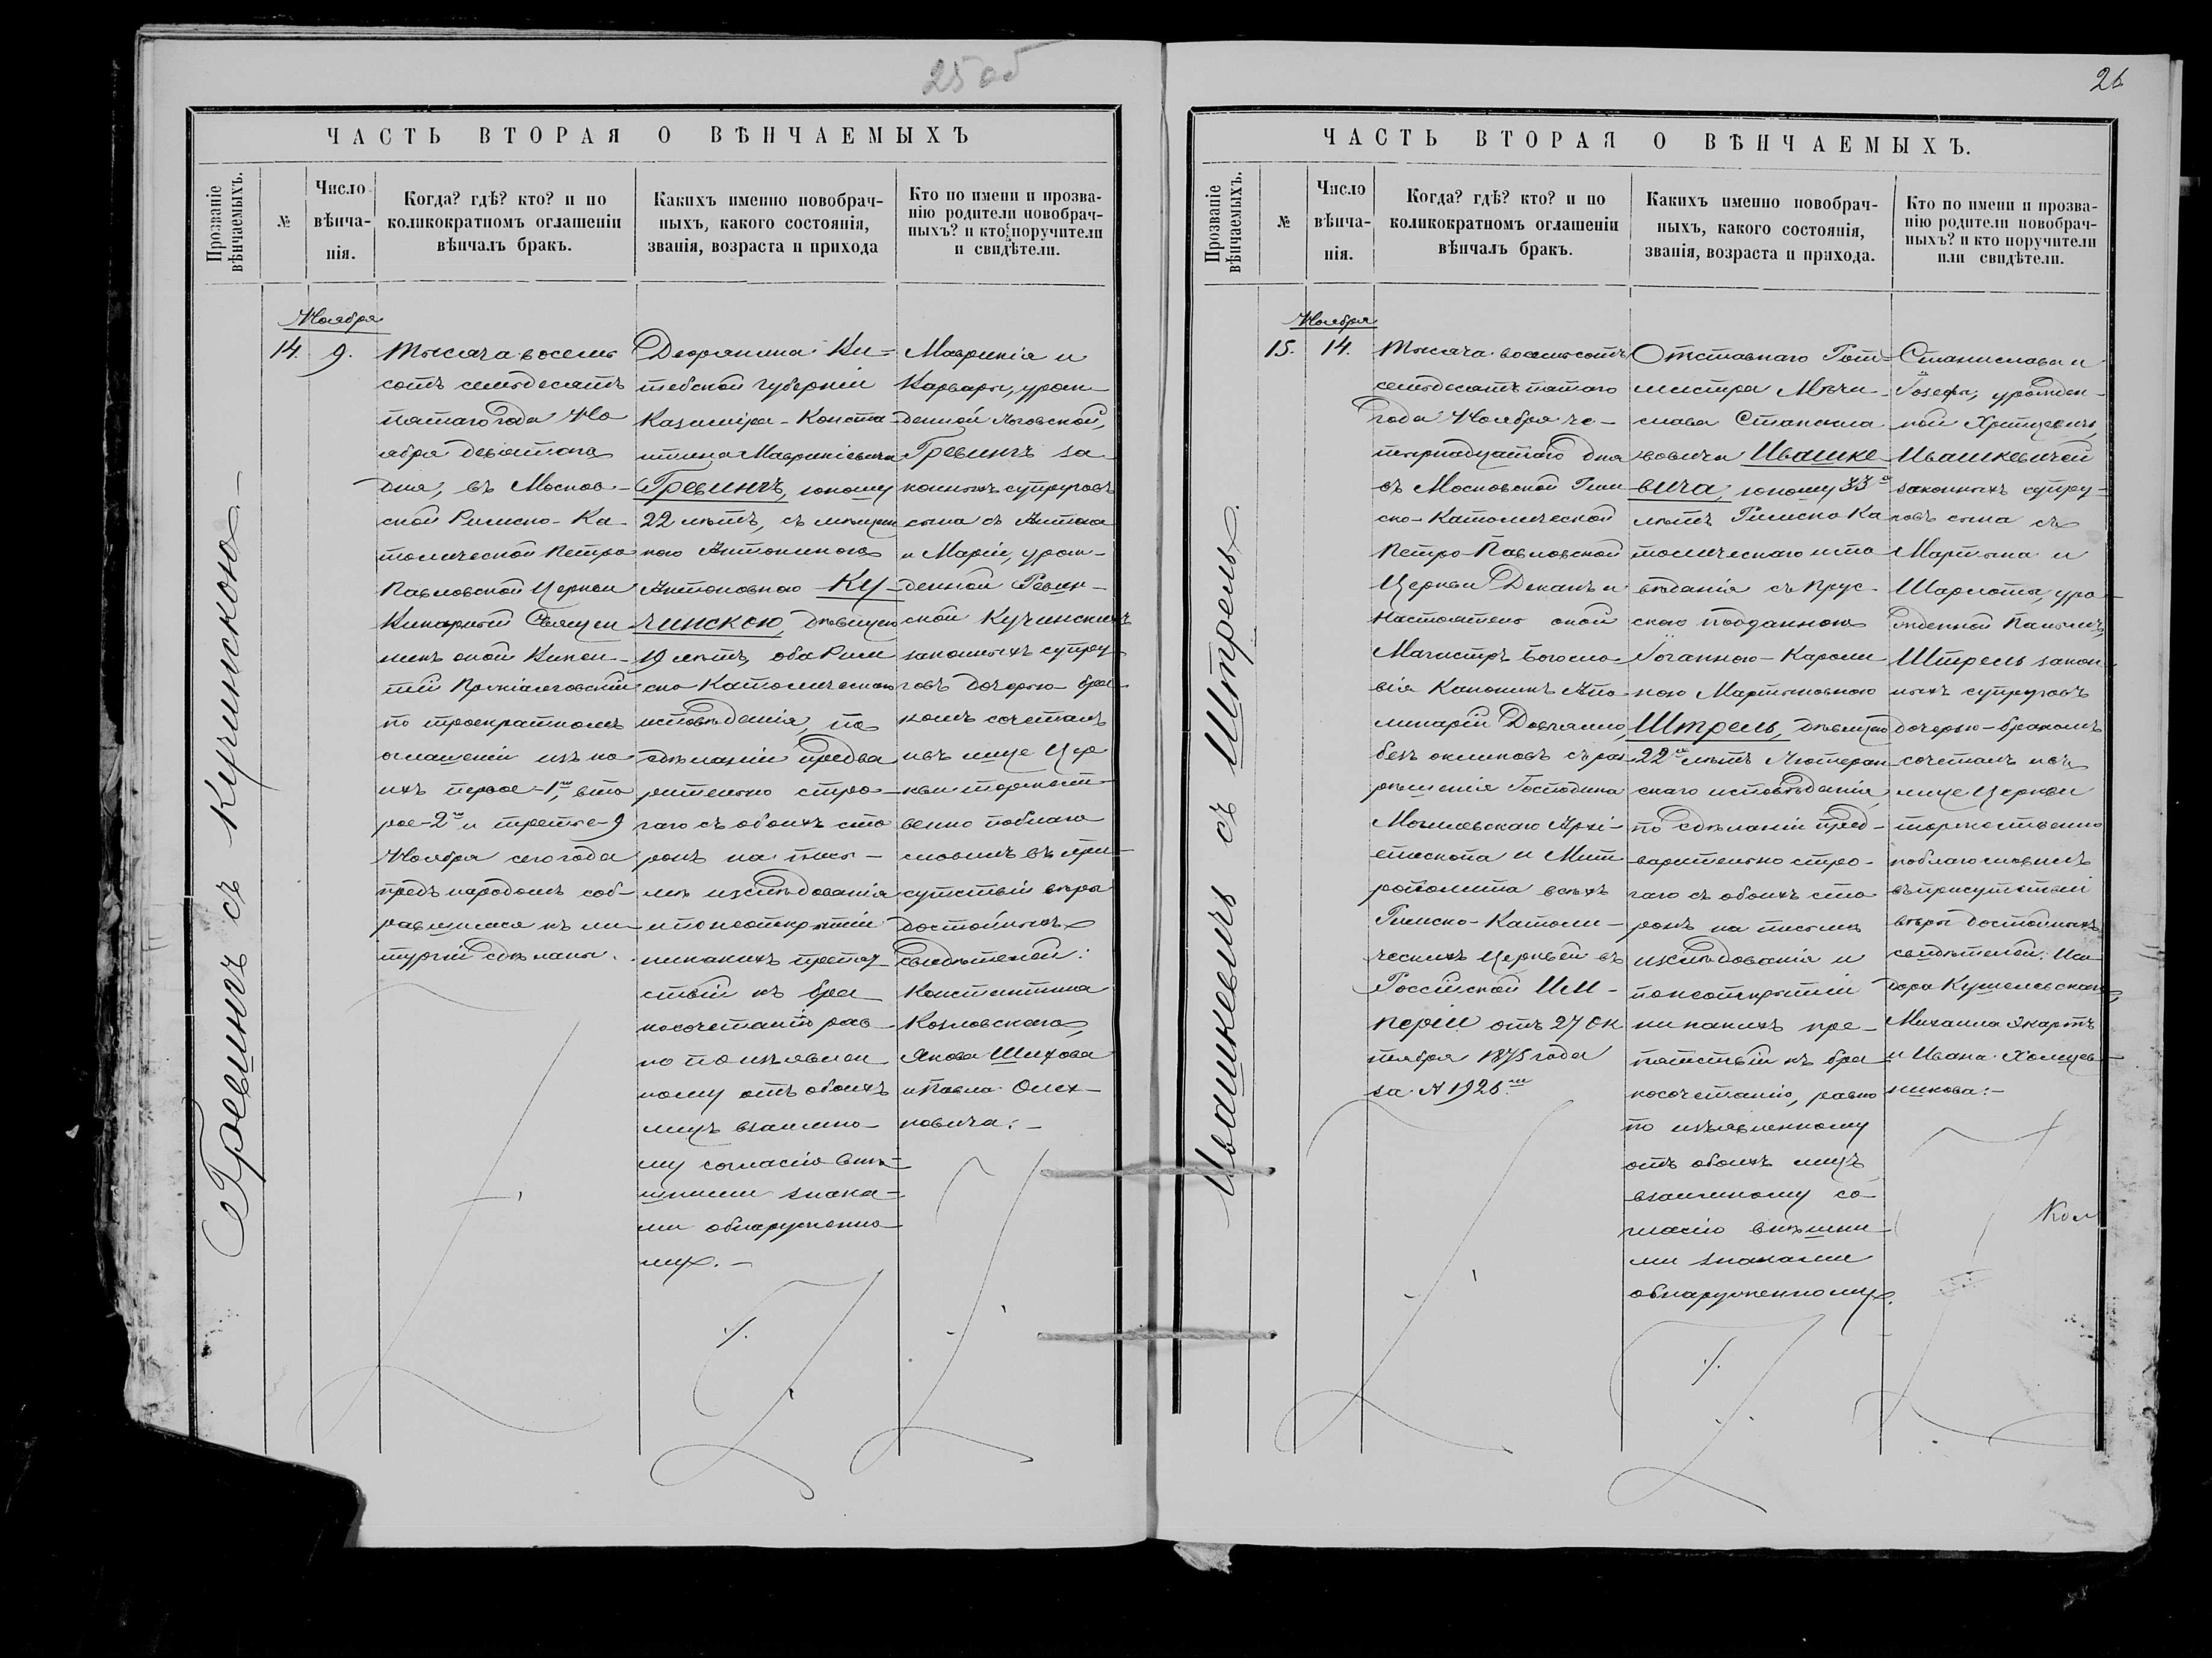 25 об
ЧАСТЬ ВТОРАЯ О ВѢНЧАЕМЫХЪ
Прозваніе вѣнчаемыхъ.
№
Число вѣнча-нія.
Когда? гдѣ? кто? и по
коликократномъ оглашеніи
вѣнчалъ бракъ.
Какихъ именно новобрач-
ныхъ, какого состоянія,
званія, возраста и прихода
Кто по имени и прозва-
нію родители новобрач-
ныхъ? и кто поручители
и свидѣтели.
Гревингъ съ Кучинскою.
Ноября
14.
9.
Тысяча восемь
сотъ семьдесятъ
пятаго года Но
ября девятаго
дня, въ Москов-
ской Римско-Ка-
толической Петро
Павловской Церкви
Викарный Священ
никъ оной Викен-
тій
по троекратномъ
оглашеніи изъ ко
ихъ первое-1го, вто
рое-2го и третье-9
Ноября сего года
предъ народомъ соб-
равшимся къ ли-
тургіи сдѣланы.
Дворянина Ви-
тебской губерніи
Казиміра-Конста
нтина Маврикіевича
Гревингъ, юношу
22 лѣтъ, съ мѣщан
кою Антониною
Антоновною Ку-
чинскою, дѣвицею
19 лѣтъ, оба Рим
ско Католическаго
исповѣданія, по
сдѣланіи предва
рительно стро-
гаго съ обоихъ сто
ронъ на пись-
мѣ изслѣдованія
и по неоткрытіи
никакихъ препят
ствій къ бра
косочетанію рав
но по изъявлен
ному отъ обоихъ
лицъ взаимно-
му согласію внѣ-
шними знака-
ми обнаруженно
му.
Маврикія и
Варвары, урож-
денной
Гревингъ за
конныхъ супруговъ
сына съ Антона
и Маріи, урож-
денной
ской Кучинскихъ
законныхъ супру
говъ дочерью бра
комъ сочеталъ
и въ лице Цер
кви торжест-
венно поблаго
словилъ въ при-
сутствіи вѣры
достойныхъ
свидѣтелей:
Константина
Козловскаго,
Якова Шихова
и Павла Олех-
новича.
26
ЧАСТЬ ВТОРАЯ О ВѢНЧАЕМЫХЪ.
Прозваніе вѣнчаемыхъ.
№
Число вѣнча-нія.
Когда? гдѣ? кто? и по
коликократномъ оглашеніи
вѣнчалъ бракъ.
Какихъ именно новобрач-
ныхъ, какого состоянія,
званія, возраста и прихода.
Кто по имени и прозва-
нію родители новобрач-
ныхъ? и кто поручители
или свидѣтели.
Ивашкевичъ съ Штрель.
Ноября
15.
14.
Тысяча восемьсотъ
семьдесятъ пятаго
года Ноября че-
тырнадцатаго дня
въ Московской Рим
ско-Католической
Петро-Павловской
Церкви Деканъ и
Настоятель оной
Магистръ Богосло-
вія Каноникъ Апо
линарій Довгялло
безъ окликовъ съ раз
рѣшенія Господина
Могилевскаго Архі-
епископа и Мит
рополита всѣхъ
Римско-Католи-
ческихъ Церквей въ
Россійской Им-
періи отъ 27 Ок
тября 1875 года
за №
Отставнаго Рот-
мистра Мечи-
слава Станисла
вовича Ивашке
вича, юношу 33
лѣтъ Римско Ка
толическаго испо
вѣданія съ Прус-
скою подданною
Іоганною-Кароли
ною Мартыновною
Штрель, дѣвицею
22 лѣтъ Лютеран
скаго исповѣданія
по сдѣланіи пред-
варительно стро-
гаго съ обоихъ сто
ронъ на письмѣ
изслѣдованія и
по неоткрытіи
никакихъ пре-
пятствій къ бра
косочетанію, равно
по изъявленному
отъ обоихъ лицъ
взаимному со
гласію внѣшни-
ми знаками
обнаруженному.
Станислава и
Іозефы, урожден-
ной
Ивашкевичей
законныхъ супру-
говъ сына съ
Мартына и
Шарлоты, уро
жденной
Штрель закон
ныхъ супруговъ
дочерью-бракомъ
сочеталъ и въ
лице Церкви
торжественно
поблагословилъ
въ присутствіи
вѣры достойныхъ
свидѣтелей: Иси
дора Кушелевскаго,
Михаила Экартъ
и Ивана
никова.